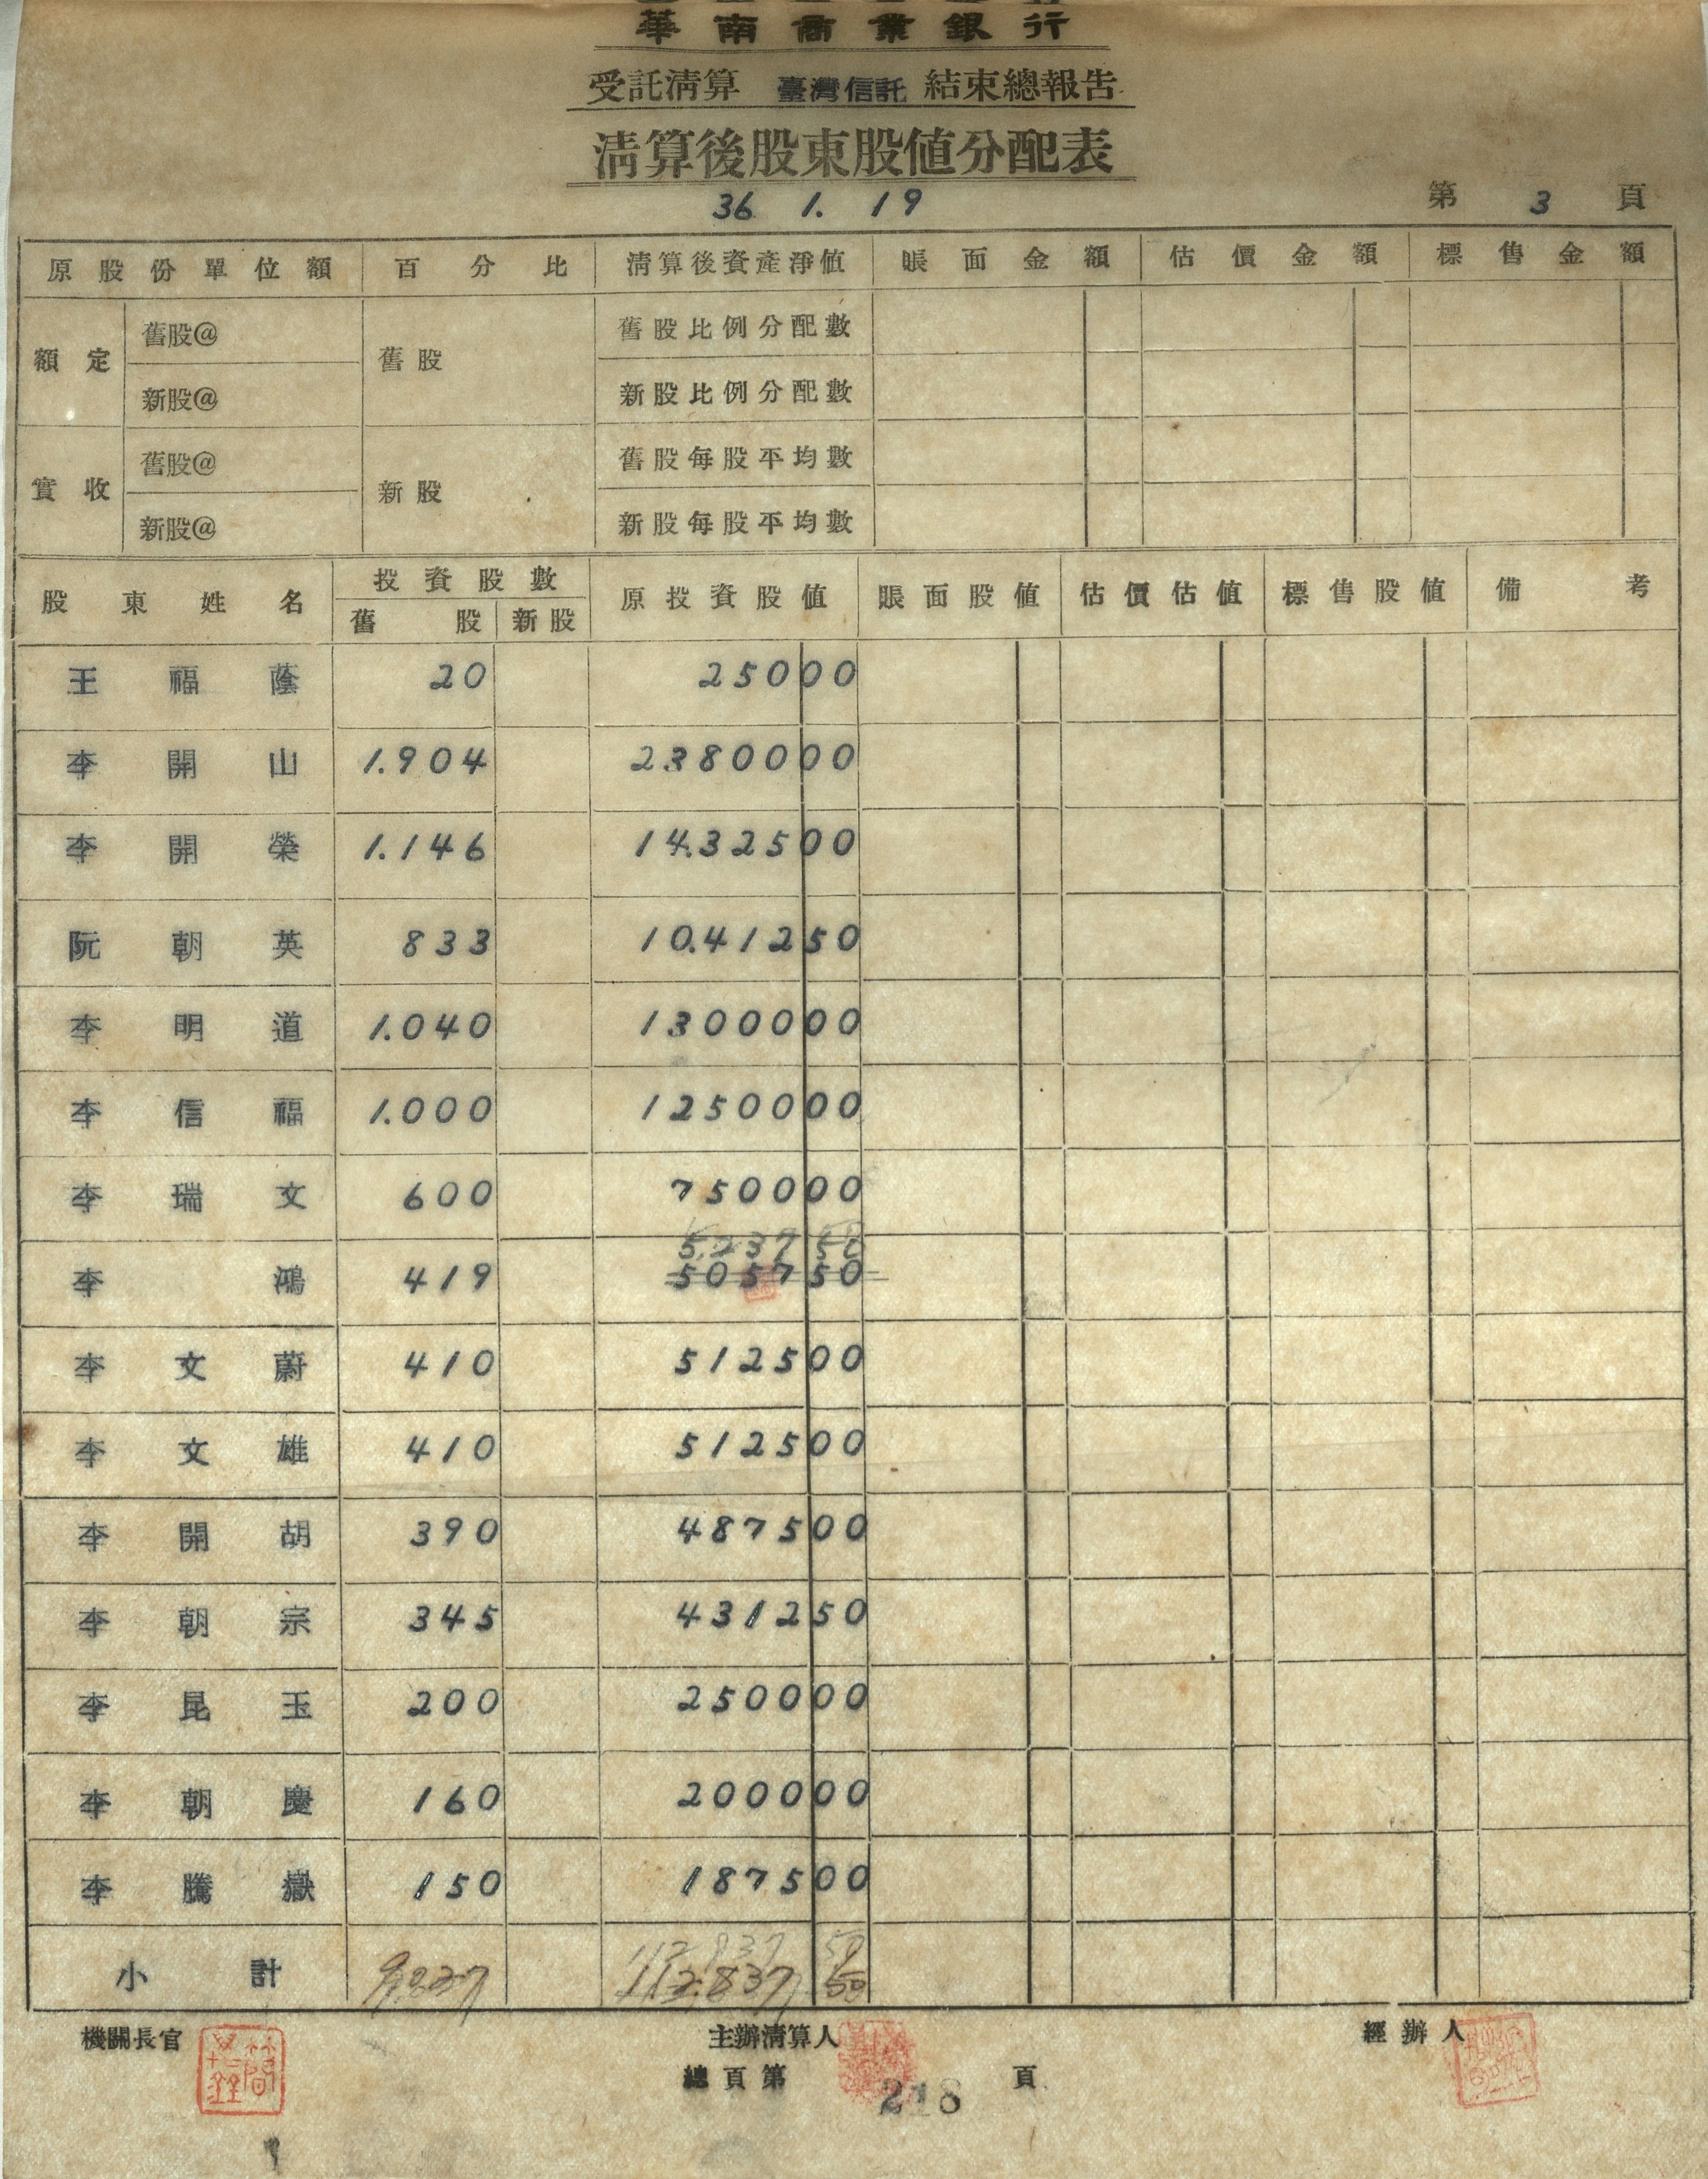 華南商業銀行
受託清算 臺灣信託 結束總報告
清算後股東股值分配表
36 1. 19
第 3 頁
原股份單位額 百分比 清算後資產淨值 賬面金額 估價金額 標售金額
額定 舊股@ 舊股 舊股比例分配數
新股@ 新股比例分配數
實收 舊股@ 新股 舊股每股平均數
新股@ 新股每股平均數
股東姓名 投資股數 原投資股值 賬面股值 估價估值 標售股值 備考
舊股 新股
王福蔭 20 250 00
李開山 1.904 23800 00
李開榮 1.146 14.325 00
阮朝英 833 10.412 50
李明道 1.040 13000 00
李信福 1.000 12500 00
李瑞文 600 7500 00
5.237 50
李鴻 419 5057 50
李文蔚 410 5125 00
李文雄 410 5125 00
李開胡 390 4875 00
李朝宗 345 4312 50
李昆玉 200 2500 00
李朝慶 160 2000 00
李騰嶽 150 1875 00
112 837 50
小計 9.027 112.837 50
機關長官 主辦清算人 經辦人
總頁第 218 頁